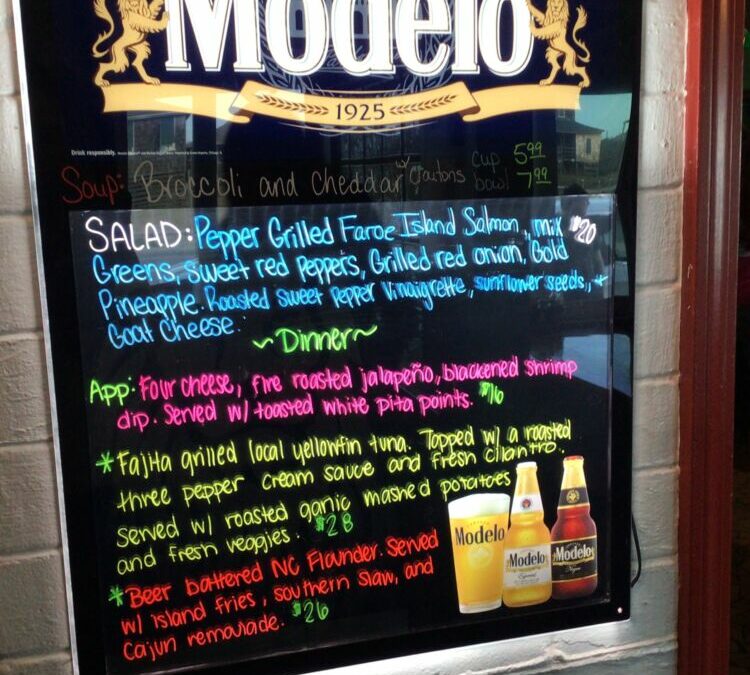 Modelo
1925
Drink responsibly.
Soup: Broccoli and Cheddar w/ croutons cup 5.99
bowl 7.99
SALAD: Pepper Grilled Faroe Island Salmon, mix $20
Greens, sweet red peppers, Grilled red onion, Gold
Pineapple. Roasted sweet pepper vinaigrette, sunflower seeds, +
Goat Cheese.
~Dinner~
App: Four cheese, fire roasted jalapeño, blackened shrimp
dip. Served w/ toasted white pita points. $16
*Fajita grilled local yellowfin tuna. Topped w/ a roasted
three pepper cream sauce and fresh cilantro.
Served w/ roasted garlic mashed potatoes
and fresh veggies. $28
*Beer battered NC Flounder. Served
w/ island fries, southern slaw, and
Cajun remoulade. $26
Modelo
Modelo
Especial
Modelo
Negra